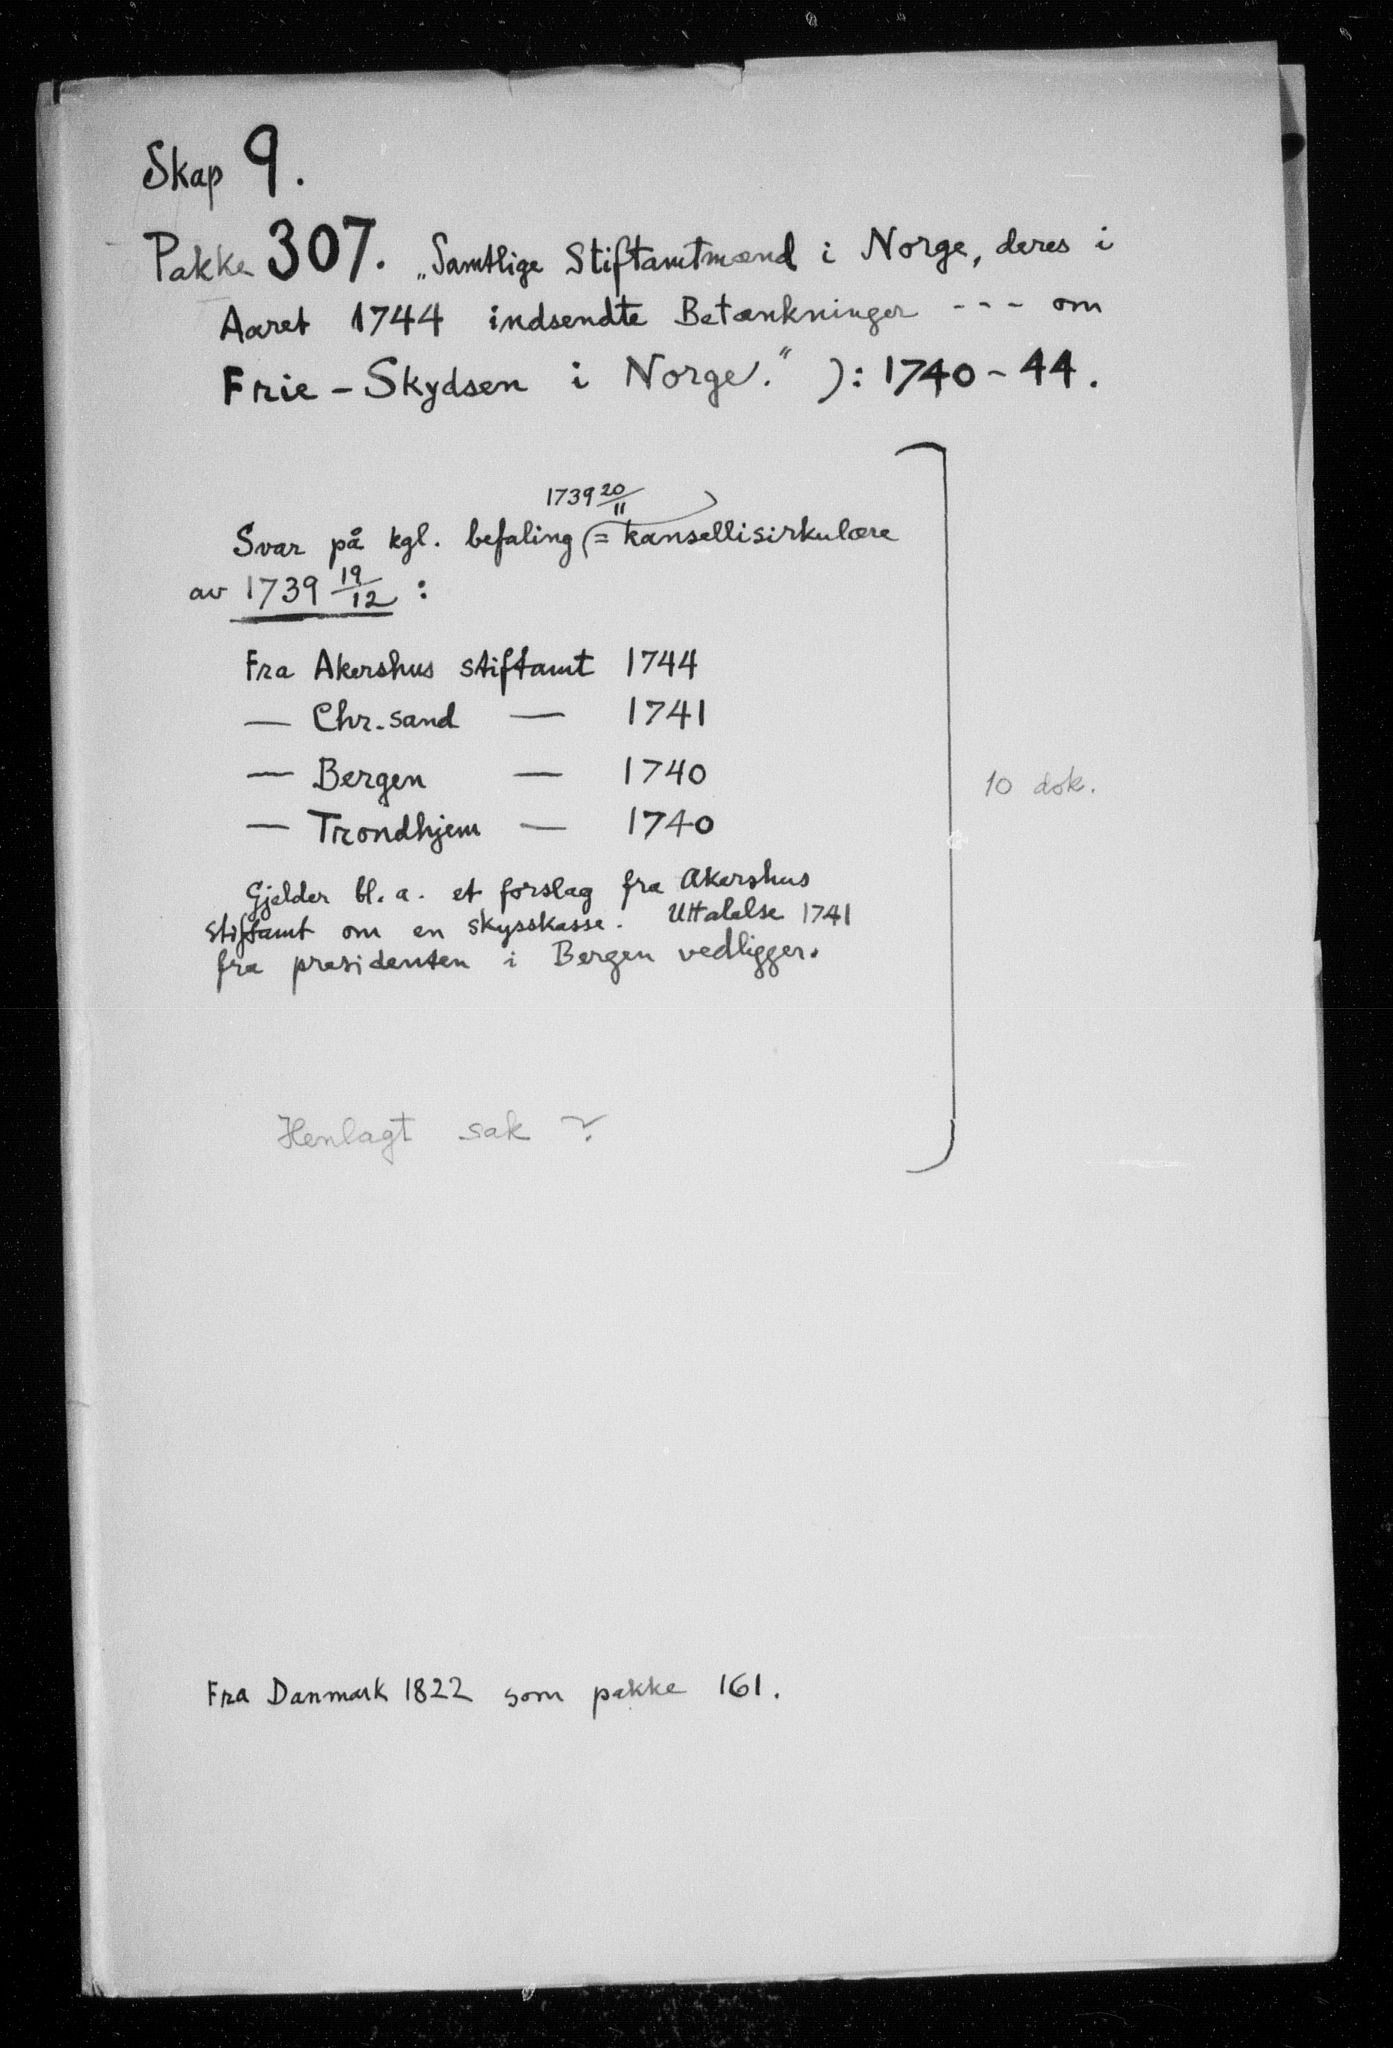 Skap 9.
Pakke 307. „Samtlige Stiftamtmænd i Norge, deres i
Aaret 1744 indsendte Betænkninger --- om
Frie-Skydsen i Norge." ): 1740-44.
1739 20/11
Svar på kgl. befaling (= kansellisirkulære
av 1739 19/12 :
Fra Akershus stiftamt 1744
— Chr.sand — 1741
— Bergen — 1740
— Trondhjem — 1740
10 dok.
Gjelder bl. a. et forslag fra Akershus
stiftamt om en skysskasse. Uttalelse 1741
fra presidenten i Bergen vedligger.
Henlagt sak ?
Fra Danmark 1822 som pakke 161.